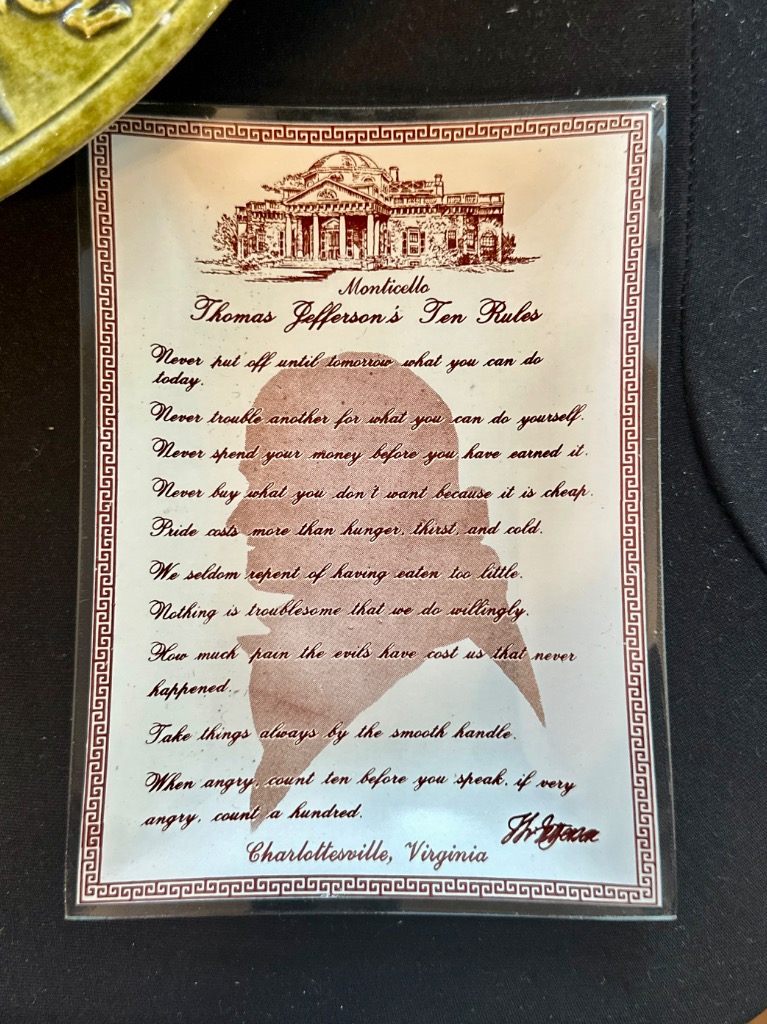 Monticello
Thomas Jefferson's Ten Rules
Never put off until tomorrow what you can do
today.
Never trouble another for what you can do yourself.
Never spend your money before you have earned it.
Never buy what you don't want because it is cheap.
Pride costs more than hunger, thirst, and cold.
We seldom repent of having eaten too little.
Nothing is troublesome that we do willingly.
How much pain the evils have cost us that never
happened.
Take things always by the smooth handle.
When angry, count ten before you speak, if very
angry, count a hundred.
Th: Jefferson
Charlottesville, Virginia